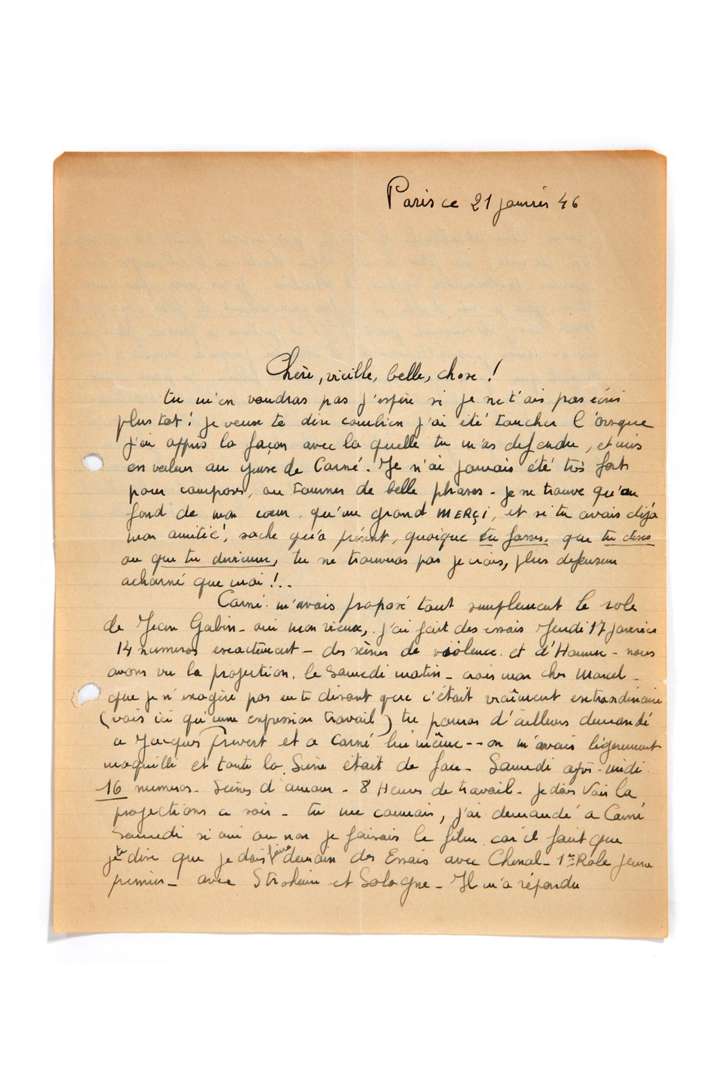 Paris ce 21 janvier 46
Chère, vieille, belle, chose !
tu m'en voudras pas j'espère si je ne t'ais pas écris
plus tot ! je veux te dire combien j'ai été toucher lorsque
j'ai appris la façon avec la quelle tu m'as defendu, et mis
en valeur au yeux de Carné. Je n'ai jamais été très fort
pour composer, ou tourner de belle phrases - je ne trouve qu'au
fond de mon cœur qu'un grand MERÇI, et si tu avais déjà
mon amitié !, sache qu'a présent, quoique tu fasses, que tu dises
ou que tu deviennes, tu ne trouveras pas je crois, plus defenseur
acharné que moi !..
Carné m'avais proposé tout simplement le role
de Jean Gabin - oui mon vieux, j'ai fait des essais Jeudi 17 janvier
14 numeros exactement - des scènes de violence et d'Humour - nous
avons vu la projection le Samedi matin - crois mon cher Marcel -
que je n'exagère pas en te disant que c'était vraîment extraordinaire
(vois ici qu'une expression travail) tu pourras d'ailleurs demandé
a Jacques Prevert et a Carné lui même -- on m'avais légèrement
maquillé et toute la Scène était de face - Samedi après-midi
16 numeros - Scènes d'amour - 8 Heures de travail - je dois voir la
projections ce soir - tu me connais, j'ai demandé a Carné
samedi si oui ou non je faisais le film car il faut que
je te dise que je dois faire demain des Essais avec Chenal - 1er Role jeune
premier - avec Stroheim et Sologne - Il m'a répondu